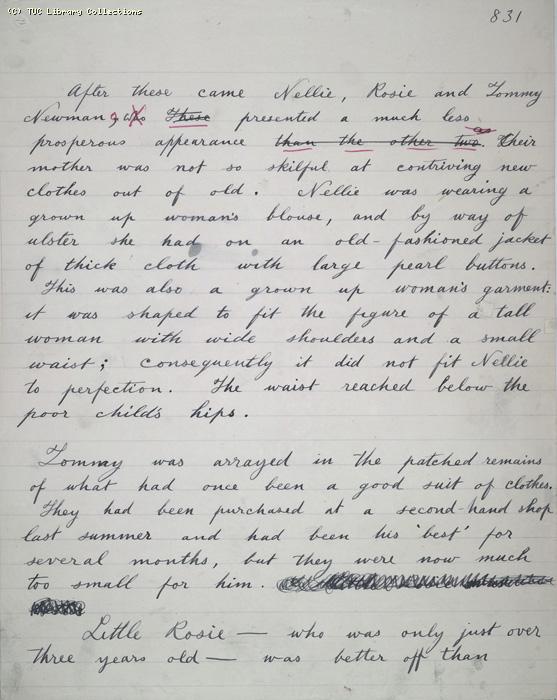 (C) TUC Library Collections
831
After these came Nellie, Rosie and Tommy
Newman, who These presented a much less
prosperous appearance than the other two. Their
mother was not so skilful at contriving new
clothes out of old. Nellie was wearing a
grown up woman's blouse, and by way of
ulster she had on an old-fashioned jacket
of thick cloth with large pearl buttons.
This was also a grown up woman's garment:
it was shaped to fit the figure of a tall
woman with wide shoulders and a small
waist; consequently it did not fit Nellie
to perfection. The waist reached below the
poor child's hips.
Tommy was arrayed in the patched remains
of what had once been a good suit of clothes.
They had been purchased at a second-hand shop
last summer and had been his 'best' for
several months, but they were now much
too small for him.
Little Rosie — who was only just over
three years old — was better off than